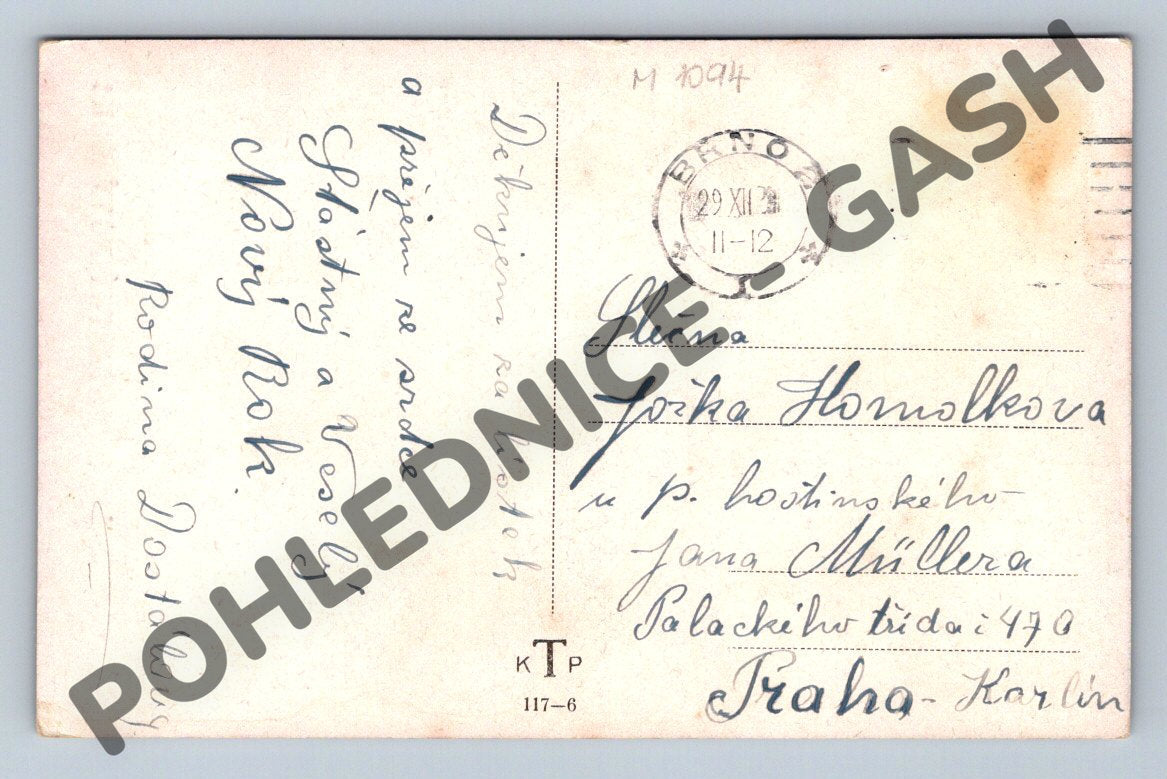 M 1094
BRNO 2
29 XII
11-12
1
Děkujem za lístek
a přejem ze srdce
Šťástný a Veselý
Nový Rok.
Rodina
Slečna
Jožka Homolkova
u p. hostinského
Jana Müllera
Palackého třída č 470
Praha - Karlín
K T P
117-6
POHLEDNICE - GASH